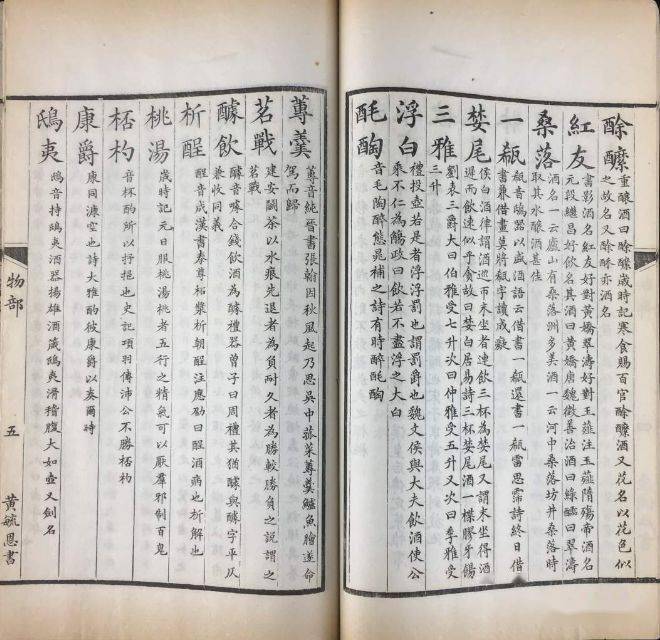 酴醿 重釀酒曰酴醿歲時記寒食賜百官酴醿酒又花名以花色似
之故名又酴醿亦酒名
紅友 書影酒名紅友好對黃嬌翠濤好對玉薤注玉薤隋煬帝酒名
元段繼昌好飲名其酒曰黃嬌唐魏徵善治酒曰綠醽曰翠濤
桑落 酒名一云廬山有桑落洲多美酒一云河中桑落坊井桑落時
取其水釀酒甚佳
一瓻 瓻音鴟器以盛酒語云借書一瓻還書一瓻雷思霈詩終日借
書兼借畫莫將瓻字讀成癡
婪尾 侯白酒律謂酒巡帀末坐者連飲三杯為婪尾又謂末坐得酒
遲而飲遠似乎貪故曰婪白居易詩三杯婪尾酒一楪膠牙餳
三雅 劉表三爵大曰伯雅受七升次曰仲雅受五升又次曰季雅受
三升
浮白 禮投壺若是者浮浮罰也謂罰爵也魏文侯與大夫飲酒使公
乘不仁為觴政曰飲若不盡浮之大白
酕醄 音毛陶醉態晁補之詩有時醉酕醄
蓴羹 蓴音純晉書張翰因秋風起乃思吳中菰菜蓴羹鱸魚膾遂命
駕而歸
茗戰 建安鬭茶以水痕先退者為負耐久者為勝較勝負之說謂之
茗戰
醵飲 醵音噱合錢飲酒為醵禮器曾子曰周禮其猶醵與醵字平仄
兼收同義
析酲 酲音成漢書泰尊柘漿析朝酲注應劭曰酲酒病也析解也
桃湯 歲時記元日服桃湯桃者五行之精氣可以厭羣邪制百鬼
桮杓 音杯酌所以抒挹也史記項羽傳沛公不勝桮杓
康爵 康同漮空也詩大雅酌彼康爵以奏爾時
鴟夷 鴟音持鴟夷酒器揚雄酒箴鴟夷滑稽腹大如壺又劍名
物部 五 黃毓恩書